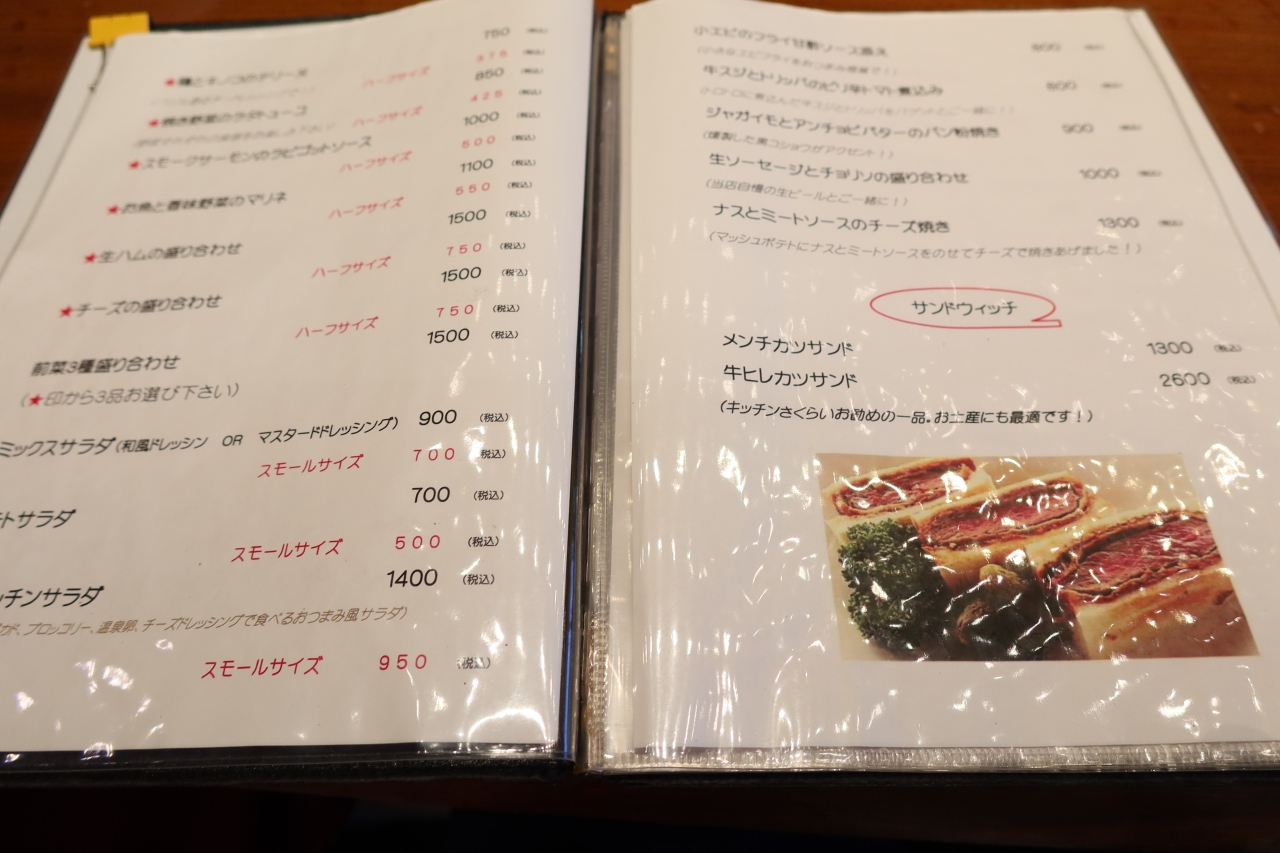 750
★鶏とキノコのテリーヌ ハーフサイズ 375 (税込)
850
★焼き野菜のラタトューユ ハーフサイズ 425 (税込)
1000 (税込)
★スモークサーモンのラビゴットソース ハーフサイズ 500 (税込)
1100 (税込)
★お魚と香味野菜のマリネ ハーフサイズ 550 (税込)
1500 (税込)
★生ハムの盛り合わせ ハーフサイズ 750 (税込)
1500 (税込)
★チーズの盛り合わせ ハーフサイズ 750 (税込)
前菜3種盛り合わせ 1500 (税込)
(★印から3品お選び下さい)
ミックスサラダ(和風ドレッシン OR マスタードドレッシング) 900 (税込)
スモールサイズ 700 (税込)
トサラダ 700 (税込)
スモールサイズ 500 (税込)
ッチンサラダ 1400 (税込)
が、ブロッコリー、温泉卵、チーズドレッシングで食べるおつまみ風サラダ)
スモールサイズ 950 (税込)
小エビのフライ甘酢ソース添え 800
牛スジとトリッパのピリ辛トマト煮込み 800
ジャガイモとアンチョビバターのパン粉焼き 900 (税込)
(燻製した黒コショウがアクセント!)
生ソーセージとチョリソの盛り合わせ 1000 (税込)
(当店自慢の生ビールとご一緒に!)
ナスとミートソースのチーズ焼き 1300 (税込)
(マッシュポテトにナスとミートソースをのせてチーズで焼きあげました!)
サンドウィッチ
メンチカツサンド 1300 (税込)
牛ヒレカツサンド 2600 (税込)
(キッチンさくらいお勧めの一品。お土産にも最適です!)